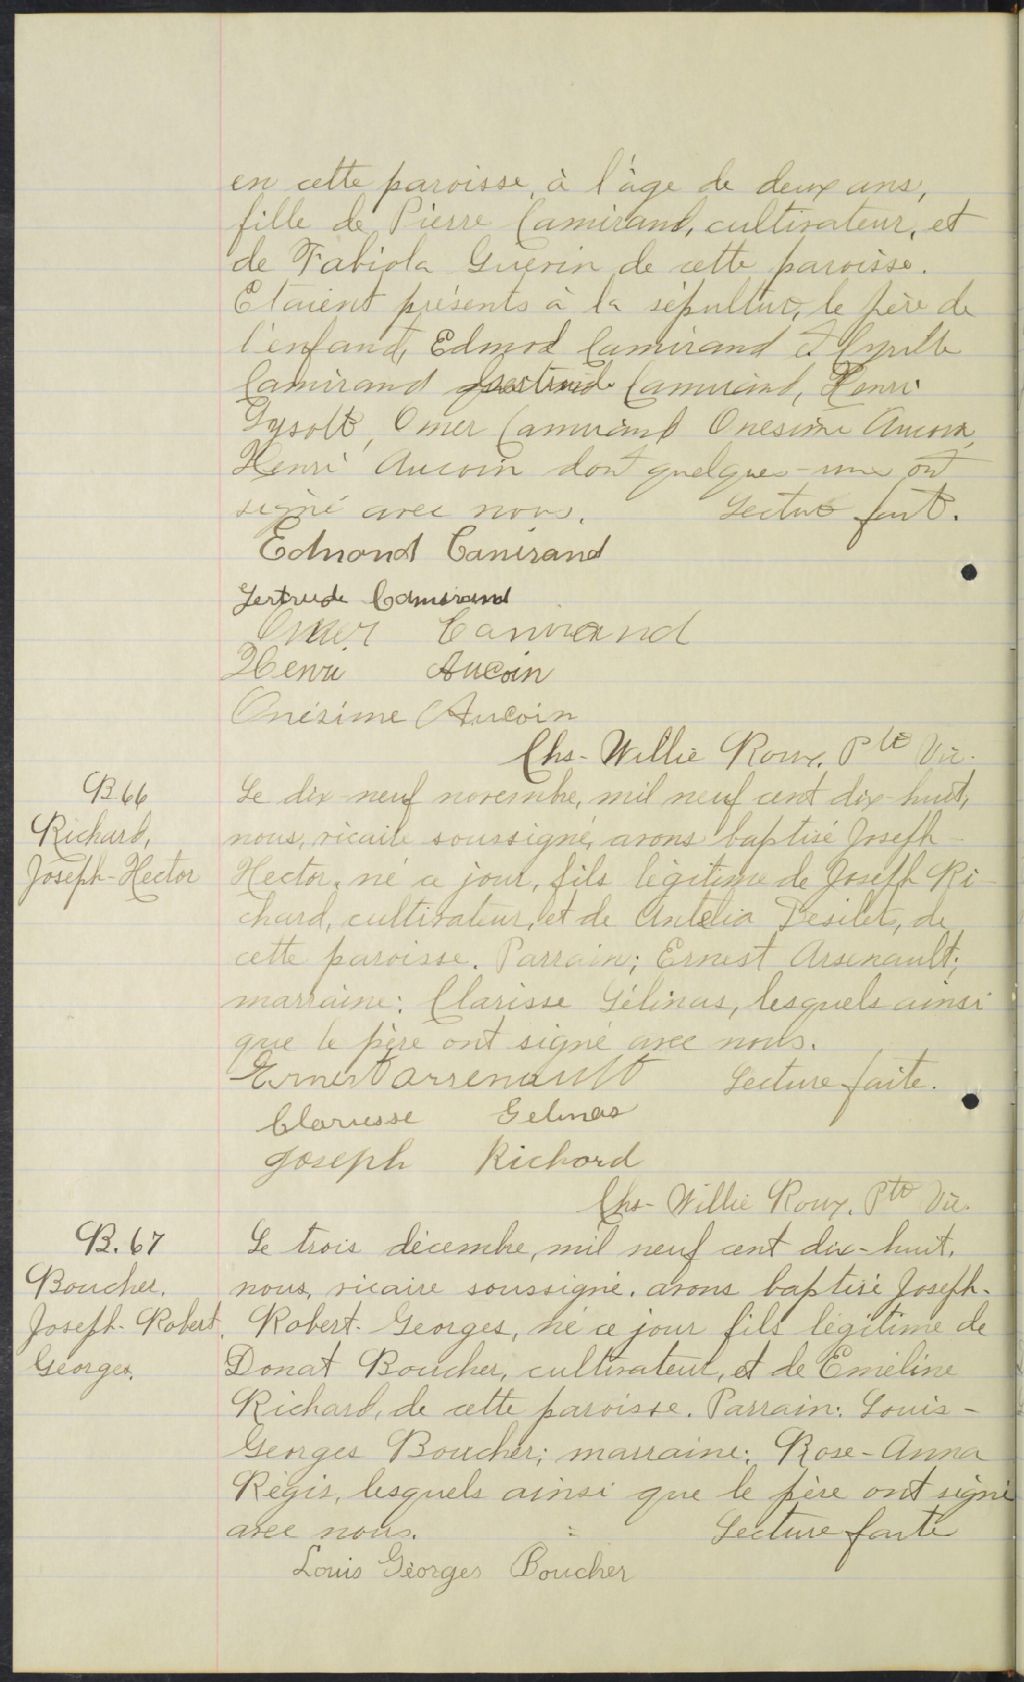 en cette paroisse, à l'âge de deux ans,
fille de Pierre Camirand, cultivateur, et
de Fabiola Guérin de cette paroisse.
Etaient présents à la sépulture, le père de
l'enfant, Edmod Camirand et Cyrille
Camirand Gertrude Camirand, Henri
Omer Camirand Onesime Aucoin,
Henri Aucoin dont quelques-uns ont
signé avec nous. Lecture faite.
Edmond Camirand
Gertrude Camirand
Omer Camirand
Henri Aucoin
Onésime Aucoin
Chs-Willie Roux, Ptre Vic.
B 66
Richard,
Joseph-Hector
Le dix-neuf novembre, mil neuf cent dix-huit,
nous, vicaire soussigné, avons baptisé Joseph-
Hector, né ce jour, fils légitime de Joseph Ri-
chard, cultivateur, et de Antelia Desilets, de
cette paroisse. Parrain; Ernest Arsenault;
marraine: Clarisse Gélinas, lesquels ainsi
que le père ont signé avec nous.
Ernest arsenault Lecture faite.
Clarisse Gelinas
Joseph Richard
Chs-Willie Roux, Ptre Vic.
B. 67
Boucher,
Joseph-Robert,
Georges,
Le trois décembre, mil neuf cent dix-huit,
nous, vicaire soussigné, avons baptisé Joseph-
Robert-Georges, né ce jour fils légitime de
Donat Boucher, cultivateur, et de Eméline
Richard, de cette paroisse. Parrain: Louis-
Georges Boucher; marraine: Rose-Anna
Régis, lesquels ainsi que le père ont signé
avec nous. Lecture faite
Louis Georges Boucher